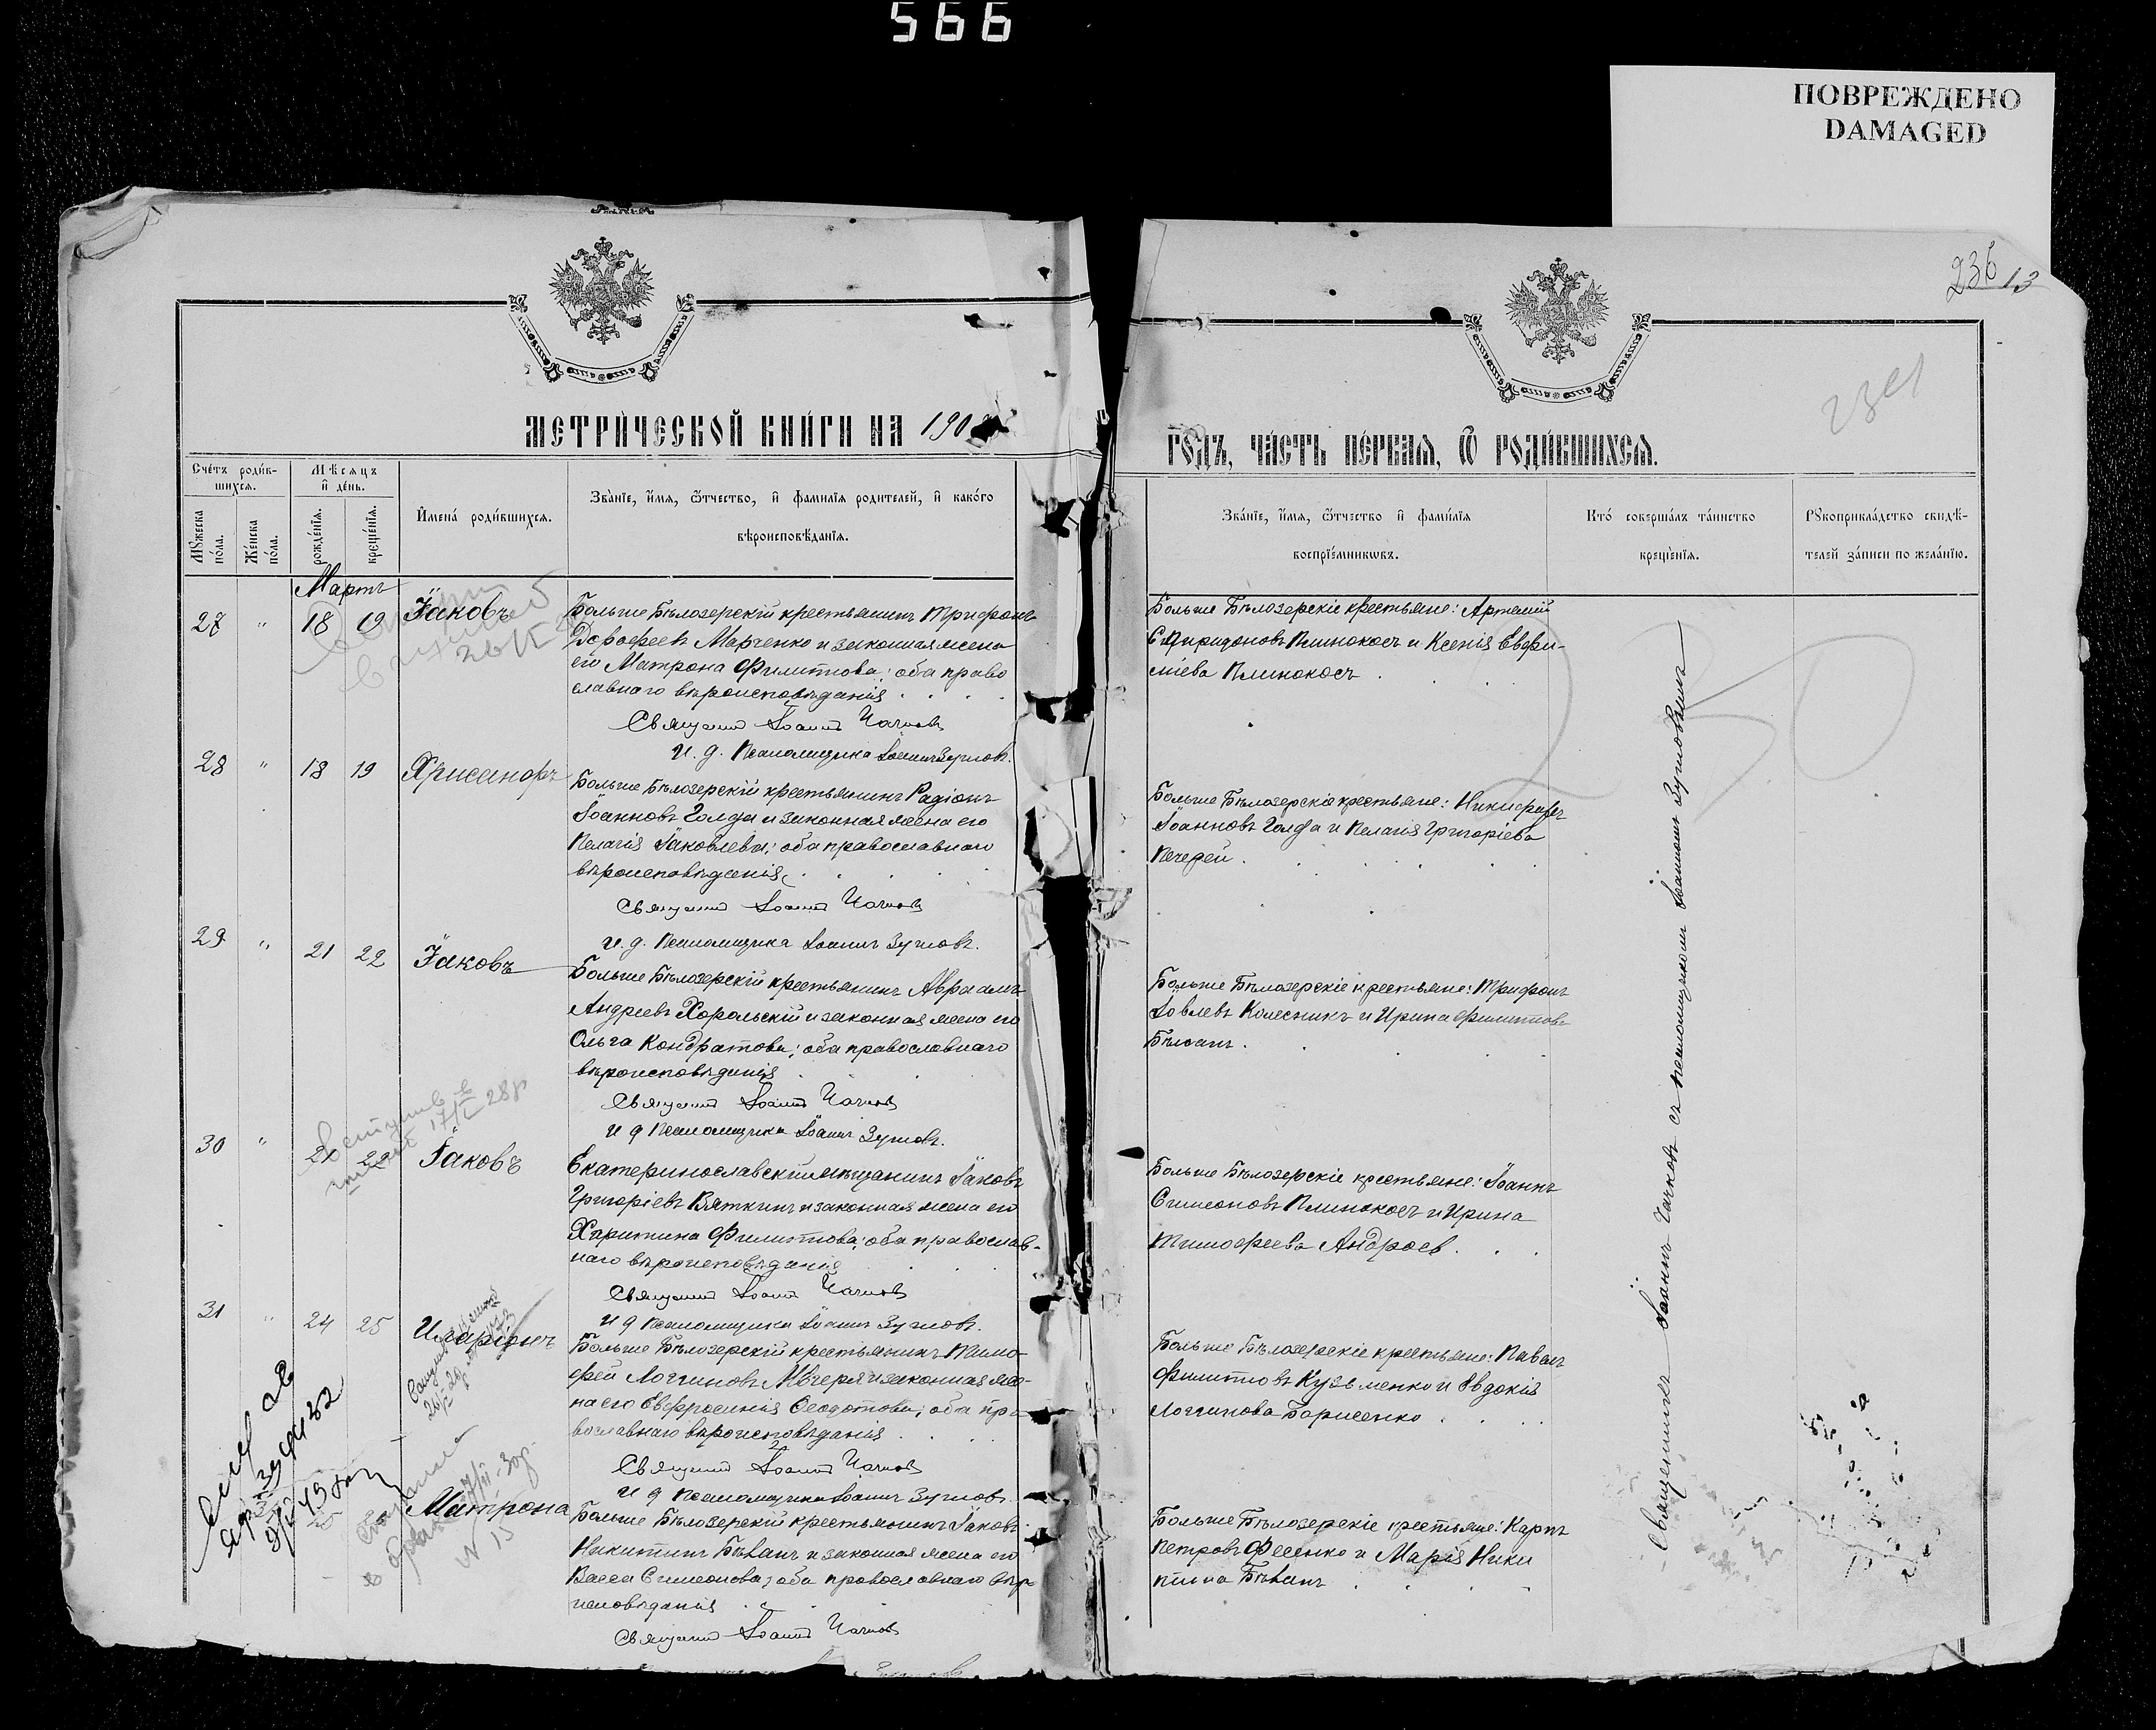 566
ПОВРЕЖДЕНО
DAMAGED
236 13
МЕТРИ́ЧЕСКОЙ КНИ́ГИ НА 190
ГОДЪ, ЧА́СТЬ ПЕ́РВАЯ, Ѿ РОДИ́ВШИХСЯ.
Сче́тъ роди́в-
шихся.
Мѣ́сяцъ
и҆ де́нь.
Мꙋ́жеска
по́ла.
Же́нска
по́ла.
рожде́нїя.
креще́нїя.
И҆мена́ роди́вшихся.
Зва́нїе, и҆́мя, ѻ҆́тчество, и҆ фами́лїя роди́телей, и҆ како́гѡ
вѣроисповѣ́данїя.
Зва́нїе, и҆́мя, ѻ҆́тчество и҆ фами́лїя
воспрїе́мникѡвъ.
Кто́ соверша́лъ та́инство
креще́нїя.
Рꙋкоприкла́дство свидѣ́-
телей за́писи по жела́нїю.
Мартъ
27 " 18 19 Іаковъ
Больше Бѣлозерскій крестьянинъ Трифонъ
Дорофеевъ Марченко и законная жена
его Матрона Филиппова; оба право
славнаго вѣроисповѣданія
Священникъ Іоаннъ Чачковъ
И. д. Псаломщика Іоаннъ Зуиловъ.
Больше Бѣлозерскіе крестьяне: Артемій
Спиридоновъ Плинокосъ и Ксенія Евфи-
міева Плинокосъ
28 " 18 19 Хрисанфъ
Больше Бѣлозерскій крестьянинъ Радіонъ
Іоанновъ Голда и законная жена его
Пелагія Іаковлева; оба православнаго
вѣроисповѣданія
Священникъ Іоаннъ Чачковъ
И. д. Псаломщика Іоаннъ Зуиловъ.
Больше Бѣлозерскіе крестьяне: Никифоръ
Іоанновъ Голда и Пелагія Григоріева
29 " 21 22 Іаковъ
Больше Бѣлозерскій крестьянинъ Авраамъ
Андреевъ Хоральскій и законная жена его
Ольга Кондратова; оба православнаго
вѣроисповѣданія
Священникъ Іоаннъ Чачковъ
И д Псаломщика Іоаннъ Зуиловъ.
Больше Бѣлозерскіе крестьяне: Трифонъ
Іовлевъ Колесникъ и Ирина Филиппова
30 " 21 22 Іаковъ
Екатеринославскій мѣщанинъ Іаковъ
Григоріевъ Вяткинъ и законная жена его
Харитина Филиппова; оба православ-
наго вѣроисповѣданія
Священникъ Іоаннъ Чачковъ
И д Псаломщика Іоаннъ Зуиловъ.
Больше Бѣлозерскіе крестьяне: Іоаннъ
Симеоновъ Плинокосъ и Ирина
Тимофеева Андроев.
31 " 24 25 Иларіонъ
Больше Бѣлозерскій крестьянинъ Тимо-
фей Логгиновъ и законная же-
на его Евфросинія Феодотова; оба пра
вославнаго вѣроисповѣданія
Священникъ Іоаннъ Чачковъ
И д Псаломщика Іоаннъ Зуиловъ.
Больше Бѣлозерскіе крестьяне: Павелъ
Филипповъ Кузьменко и Евдокія
Логгинова Борисенко
Матрона
Больше Бѣлозерскій крестьянинъ Іаковъ
Никитинъ Бѣланъ и законная жена его
Васса Симеонова; оба православнаго вѣро
исповѣданія
Священникъ Іоаннъ Чачковъ
Больше Бѣлозерскіе крестьяне: Карпъ
Петровъ Фесенко и Марія Ники
тина Бѣланъ
Священникъ Іоаннъ Чачковъ съ псаломщикомъ Іоанномъ Зуиловымъ